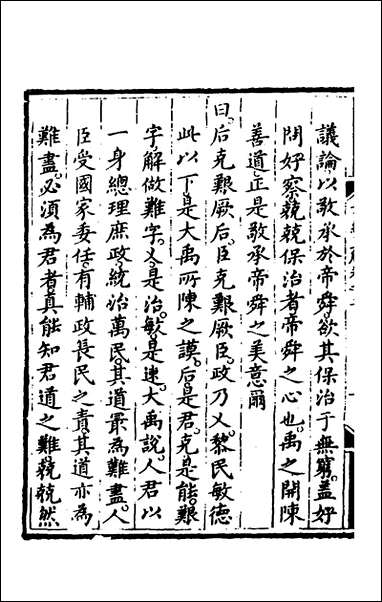 議論以敬承於帝舜。欲其保治于無窮。蓋好
問好察。兢兢保治者。帝舜之心也。禹之開陳
善道。正是敬承帝舜之美意爾
曰。后克艱厥后。臣克艱厥臣。政乃乂。黎民敏德
此以下。是大禹所陳之謨。后是君。克是能。艱
字。解做難字。乂是治。敏是速。大禹說。人君以
一身總理庶政。統治萬民。其道最為難盡。人
臣受國家委任。有輔政長民之責。其道亦為
難盡。必須為君者。真能知君道之難。兢兢然